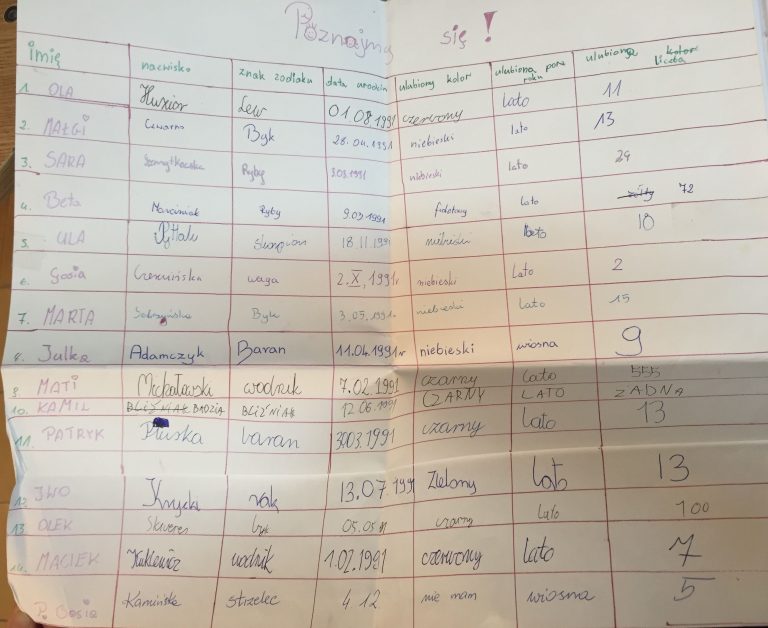 Poznajmy się!
imię nazwisko znak zodiaku data urodzin ulubiony kolor ulubiona pora roku ulubiona kolor liczba
1. OLA Lew 01.08.1991 czerwony lato 11
2. MAŁGI Czwarno Byk 28.04.1991 niebieski lato 13
3. SARA Ryby 9.03.1991 niebieski lato 29
4. Beta Marciniak Ryby 9.03.1991 fioletowy lato żółty 72
5. ULA Skorpion 18.11.1991 niebieski lato 18
6. Gosia Czerwińska waga 2.X.1991r niebieski lato 2
7. MARTA Byk 3.05.1991r niebieski lato 15
8. Julka Adamczyk Baran 11.04.1991r niebieski wiosna 9
9. MATI Michałowski wodnik 7.02.1991 czarny lato 555
10. KAMIL BLIŹNIAK BADZIA BLIŹNIAK 12 06.1991 CZARNY LATO ŻADNA
11. PATRYK Pluska baran 30.03.1991 czarny lato 13
12. IWO rak 13.07.1991 Zielony lato 13
13. OLEK Skweres byk 05.05 91 czarny lato 100
14. MACIEK Kukiewicz wodnik 1.02.1991 czerwony lato 7
P. Gosia Kamińska strzelec 4 12 nie mam wiosna 5